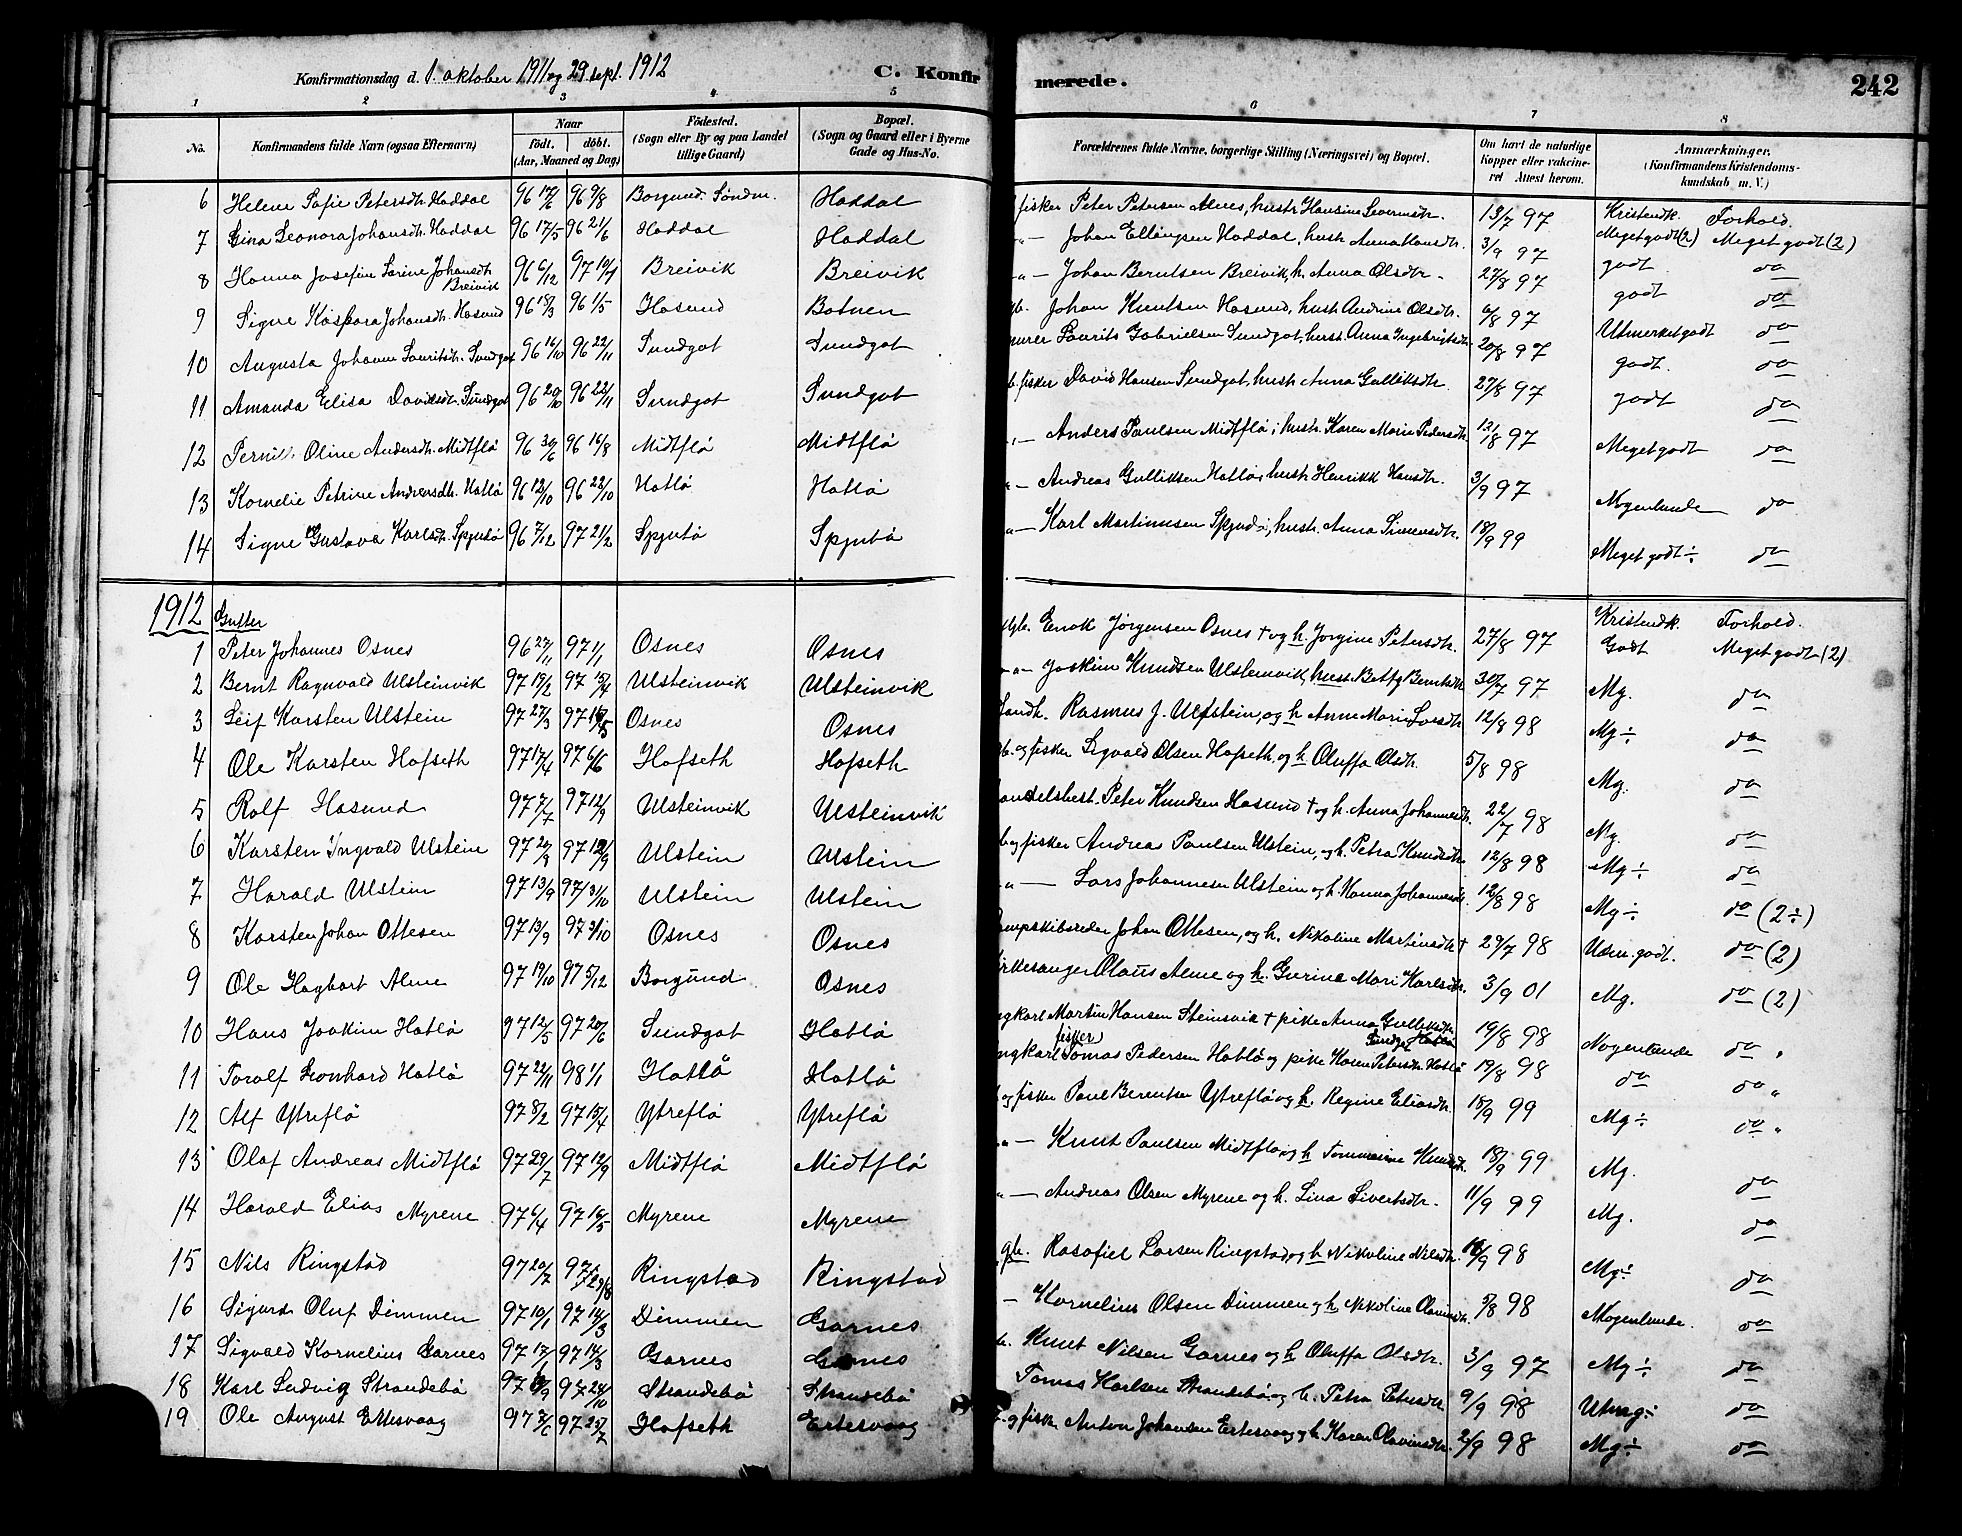 Konfirmationsdag d. 1. oktober 1911 og 29 sept. 1912
C. Konfirmerede. 242
1 2 3 4 5 6 7 8
No. Konfirmandens fulde Navn (ogsaa Efternavn) Naar født. døbt. (Aar, Maaned og Dag) Fødested. (Sogn eller By og paa Landet tillige Gaard) Bopæl. (Sogn og Gaard eller i Byerne Gade og Hus-No. Forældrenes fulde Navne, borgerlige Stilling (Næringsvei) og Bopæl. Om havt de naturlige Kopper eller vakcineret Attest herom. Anmærkninger. (Konfirmandens Kristendomskundskab m. V.)
Kristendk. Forhold.
6 Helene Sofie Petersdtr. Haddal 96 17/6 96 9/8 Borgund. Søndm. Haddal fisker Peter Petersen Alnes, hustr. Hansine Severinsdtr. 13/7 97 Meget godt (2) Meget godt (2)
7 Lina Leonora Johansdtr. Haddal 96 17/5 96 21/6 Haddal Haddal -"- Johan Ellingsen Haddal, hustr. Anna Hansdtr. 3/9 97 godt do
8 Hanna Josefine Sørine Johansdtr. Breivik 96 6/12 97 Breivik Breivik -"- Johan Berntsen Breivik, h. Anna Olsdtr. 27/8 97 godt do
9 Signe Kaspara Johansdtr. Hasund 96 18/3 96 1/5 Hasund Botnen gb. Johan Knutsen Hasund, hustr. Andrine Olsdtr. 6/8 97 Utmerket godt do
10 Augusta Johanne Lauritsdtr. Sundgot 96 16/10 96 22/11 Sundgot Sundgot murer Laurits Gabrielsen Sundgot, hust. Anna Ingebrigtsdtr. 20/8 97 godt. do
11 Amanda Elisa Davidsdt. Sundgot 96 20/10 96 22/11 Sundgot Sundgot fisker David Hansen Sundgot, hustr. Anna Gulliksdtr. 27/8 97 godt do
12 Pernille Oline Andersdtr. Midtflø 96 30/6 96 16/8 Midtflø Midtflø -"- Anders Paulsen Midtflø, hustr. Karen Marie Pedersdtr. 12/8 97 Meget godt do
13 Kornelie Petrine Andreasdtr. Hatlø 96 12/10 96 22/10 Hatlø Hatlø -"- Andreas Gulliksen Hatlø, hustr. Henrikk Hansdtr. 3/9 97 Nogenlunde do
14 Signe Gustava Karlsdtr. Spjutø 96 7/12 97 21/2 Spjutø Spjutø -"- Karl Martinusen Spjutø, hustr. Anna Simensdtr. 18/9 99 Meget godt ÷ do
1912 Gutter Kristendk. Forhold.
1 Peter Johannes Osnes 96 27/11 97 1/1 Osnes Osnes gb. Enok Jørgensen Osnes + og h. Jørgine Petersdtr. 27/8 97 Godt Meget godt (2)
2 Bernt Ragnvald Ulsteinvik 97 19/2 97 15/4 Ulsteinvik Ulsteinvik -"- Joakim Knudsen Ulsteinvik, hust. Betty Berntsdtr. 30/7 97 Mg. do
3 Leif Karsten Ulstein 97 27/3 97 Osnes Osnes Landh. Rasmus J. Ulstein, og h Anne Marie 12/8 98 Mg ÷ do
4 Ole Karsten Hofseth 97 17/4 97 6/6 Hofseth Hofseth gb. og fisker Sigvald Olsen Hofseth og h Oluffa Olsdtr. 5/8 98 Mg. do
5 Rolf Hasund 97 7/7 97 12/9 Ulsteinvik Ulsteinvik handelsbest. Peter Knudsen Hasund + og h. Anna Johannesdtr. 22/7 98 Mg. do
6 Karsten Ingvald Ulstein 97 97 12/9 Ulstein Ulstein og fisker Andreas Paulsen Ulstein, og h. Petra Knudsdtr. 12/8 98 Mg ÷ do
7 Harald Ulstein 97 13/9 97 31/10 Ulstein Ulstein -"- Lars Johannesen Ulstein og h Hanna Johannesdtr. 12/8 98 Mg ÷ do (2÷)
8 Karsten Johan Ottesen 97 13/9 97 3/10 Osnes Osnes Dampskibsreder Johan Ottesen, og h. Nikoline Martinsdtr + 29/7 98 Udm. godt. do (2)
9 Ole Hagbart Alme 97 19/10 97 5/12 Borgund Osnes kirkesanger Olaus Alme og h. Gurine Mari Karlsdtr. 3/9 01 Mg. do (2)
10 Hans Joakim Hatlø 97 12/5 97 20/6 Sundgot Hatlø ungkarl Martin Hansen Steinsvik + pike Anna Gulliksdtr. Hatlø 19/8 98 Nogenlunde do "
11 Toralf Leonhard Hatlø 97 22/11 98 1/1 Hatlø Hatlø ungkarl fisker Tomas Pedersen Hatlø og pike Karen Petersdtr. Hatlø 19/8 98 do do "
12 Alf Ytreflø 97 8/2 97 15/4 Ytreflø Ytreflø og fisker Paul Berentsen Ytreflø og h. Regine Eliasdtr. 18/9 99 Mg ÷ do "
13 Olaf Andreas Midtflø 97 29/7 97 12/9 Midtflø Midtflø -"- Knut Paulsen Midtflø og h Tommasine Knudsdtr. 18/9 99 Mg. do
14 Harald Elias Myrene 97 6/4 97 16/5 Myrene Myrene -"- Andreas Olsen Myrene og h. Lina Sivertsdtr. 11/9 99 Mg. do
15 Nils Ringstad 97 20/7 97 29/8 Ringstad Ringstad gb. Rasafiel Larsen Ringstad og h Nikoline Nilsdtr. 98 Mg ÷ do
16 Sigurd Oluf Dimmen 97 10/1 97 14/3 Dimmen Garnes - Kornelius Olsen Dimmen og h Nikoline 5/8 98 Nogenlunde. do
17 Sigvald Kornelius Garnes 97 17/1 97 14/3 Garnes Garnes Knut Nilsen Garnes og h Oluffa Olsdtr. 3/9 97 Mg ÷ do
18 Karl Ludvig Strandebø 97 97 24/10 Strandebø Strandebø Tomas Karlsen Strandebø og h. Petra Petersdtr. 9/9 98 Utmg ÷ do
19 Ole August Ertesvaag 97 97 25/7 Hofseth Ertesvaag og fisk. Anton Johansen Ertesvaag og h. Karen Olavinsdtr. 2/9 98 Mg ÷ do